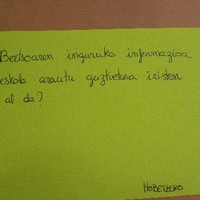 Bertsoaren inguruko informazioa
eskola orduetu guztietara iristen
al da?
HOBETZEKO